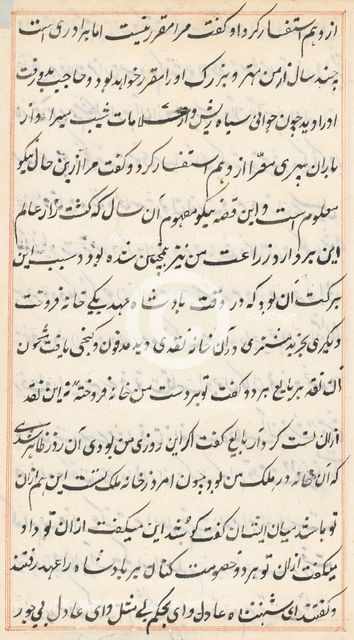 از وهم استفسار کرد او گفت مرا مقرر نیست اما برادری است
چند سال از من مهتر و بزرگ او را مقرر خواهد بود و حاجب بدو رفت
او را دید چون جوانی سیاه ریش و از علامات شیب
باران پیری معرا از وهم استفسار کرد و گفت مرا ازین حال نیکو
معلوم است و این قصه نیکو مفهوم آن سال که گشت زار عالم
این بر دارد زراعت من نیز همچنین نده بود و سبب این
برکت آن بود که در وقت پادشاه عهد یکی خانه فروخت
دیگری بخرید مشتری در آن خانه نقدی دید مدفون و گنجی یافت
آن نقد بر بایع برد و گفت تو بر دست من خانه فروختهٔ نه این نقد
از آن تست کردار بایع گفت اگر این روزی من بودی آن روز ظاهر شدی
که آن خانه در ملک من بود چون امروز خانه ملک تست این هم از آن
تو باشد میان ایشان گفت گو شد این میگفت از آن تو و او
میگفت از آن تو بر دو خصومت کنان بر پادشاه را عهد رفتند
و گفتند ای شهنشاه عادل و ای بحکم بی مثل و ای عادل بی جور